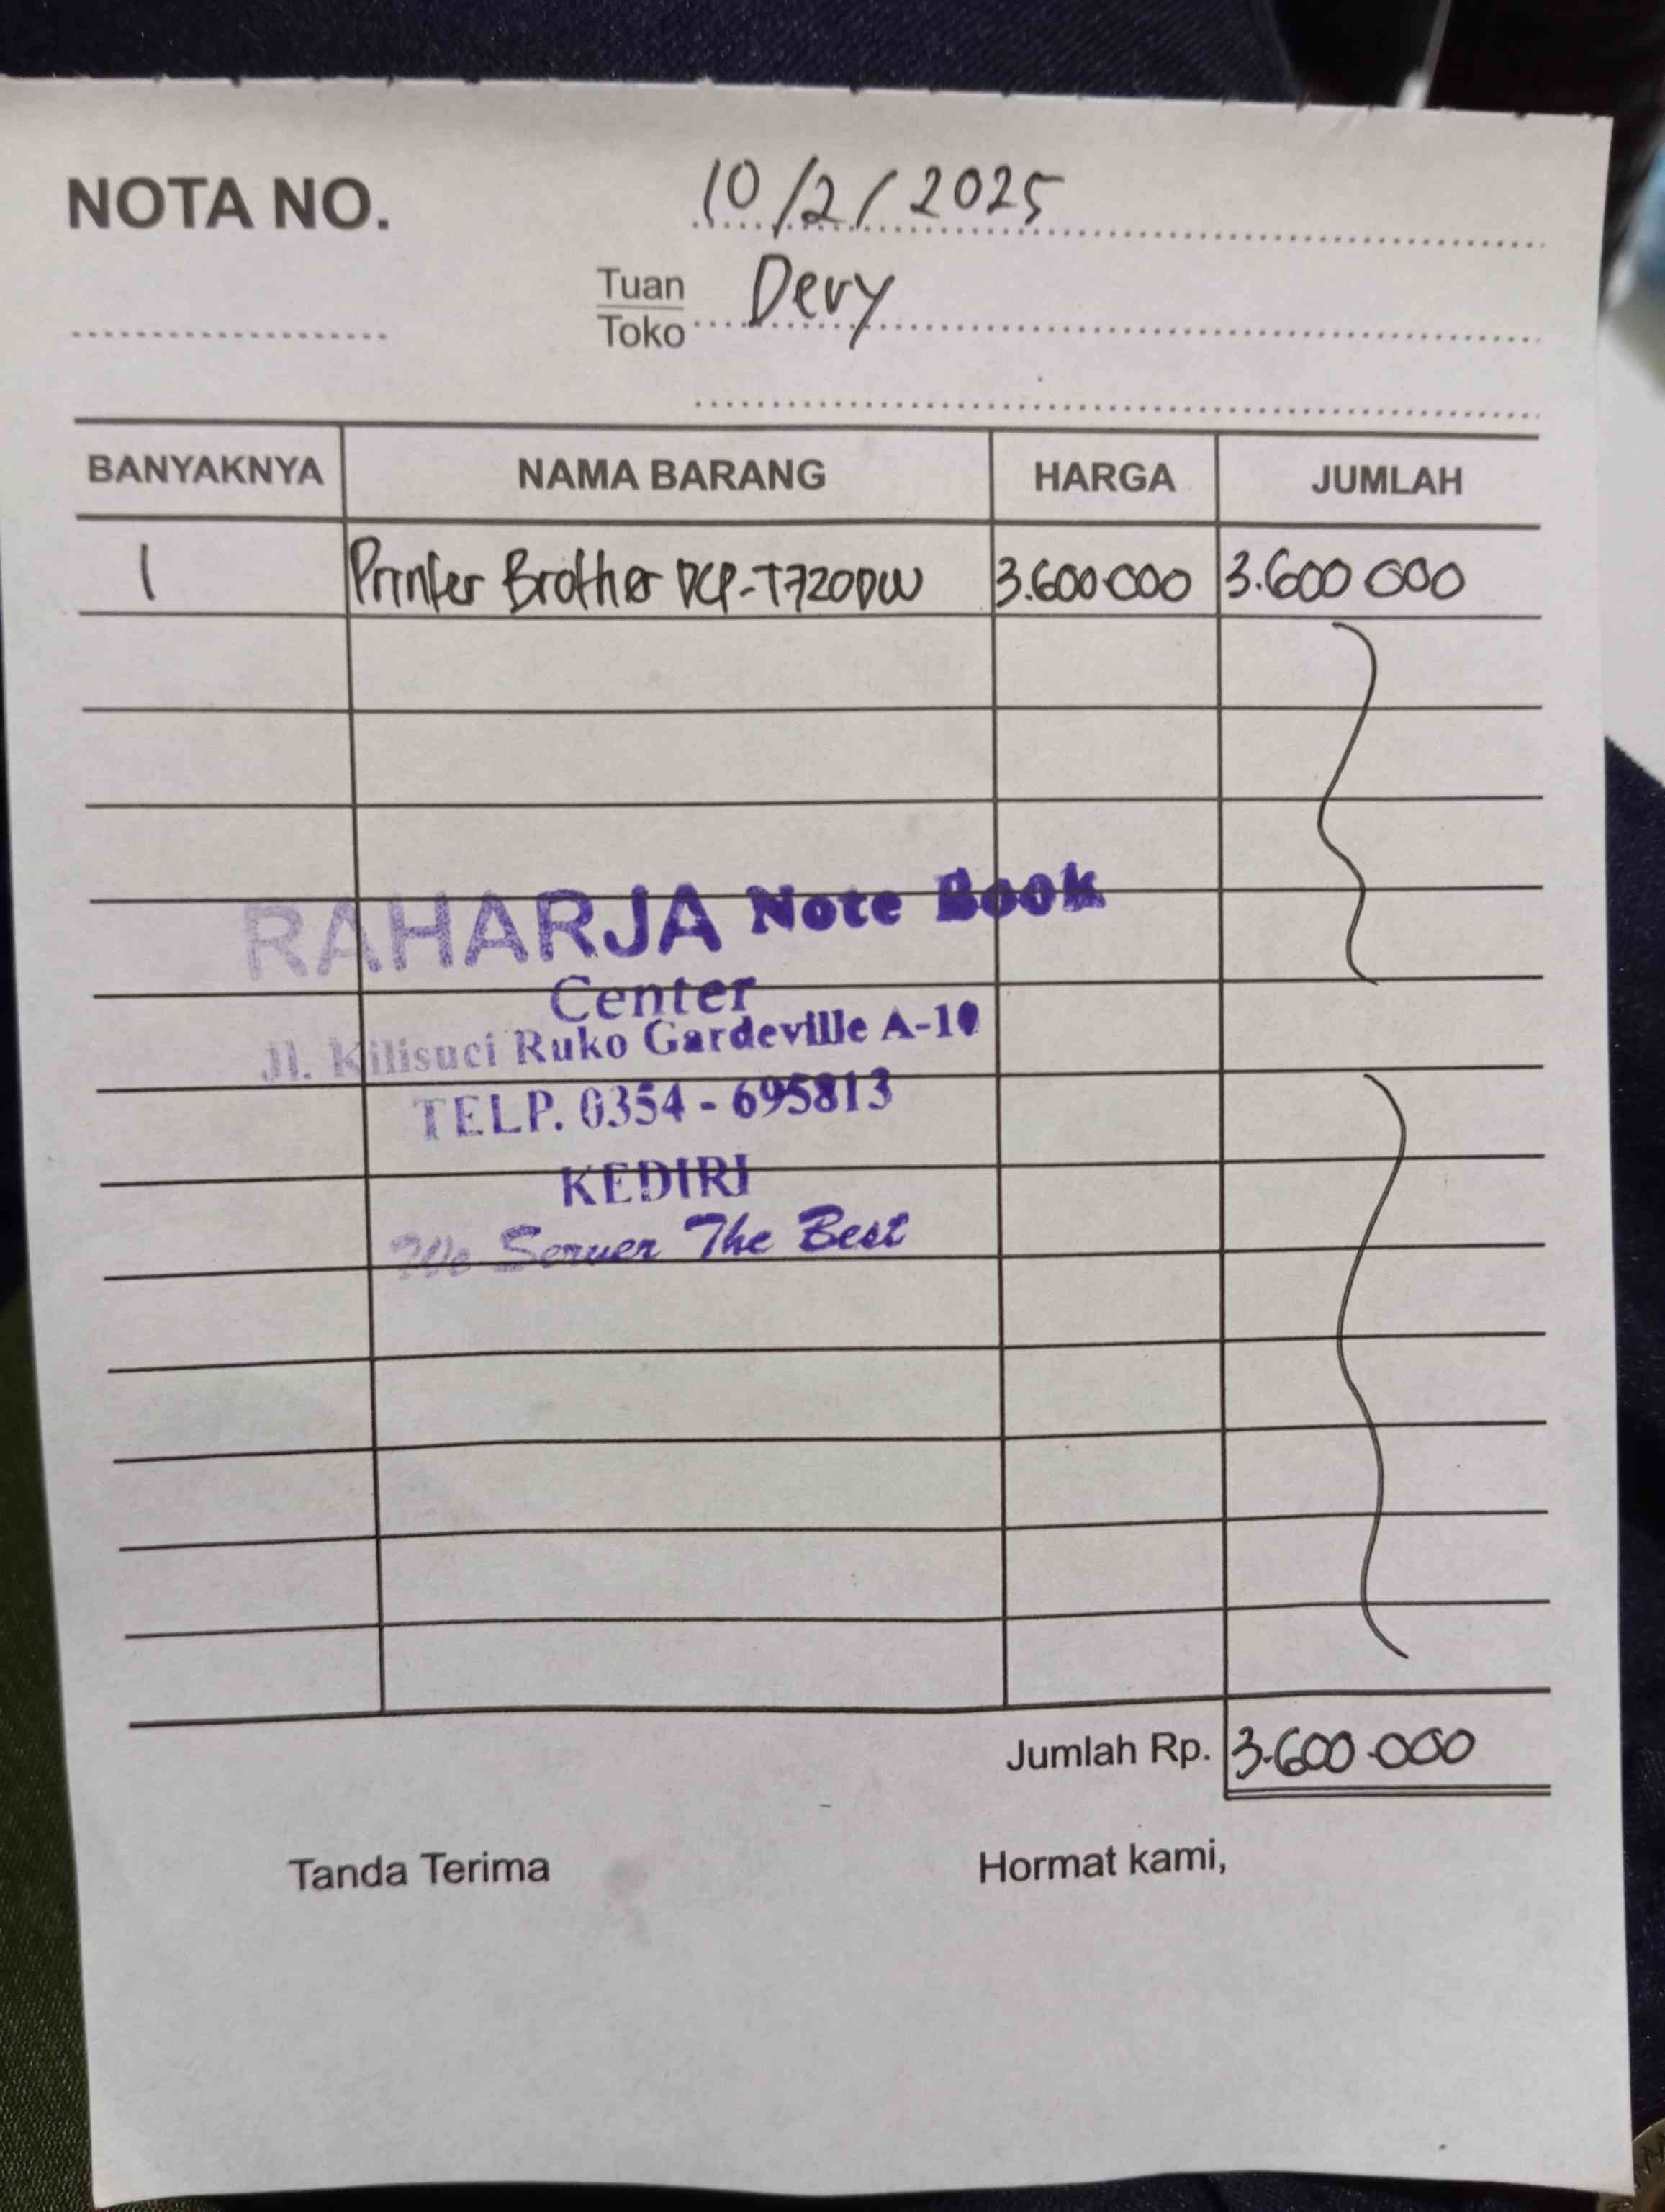 NOTA NO.
10/2/2025
Tuan
Toko
Devy
BANYAKNYA NAMA BARANG HARGA JUMLAH
1 Printer Brother DCP-T720DW 3.600.000 3.600 000
RAHARJA Note Book
Center
Jl. Kilisuci Ruko Gardeville A-10
TELP. 0354 - 695813
KEDIRI
We Server The Best
Jumlah Rp. 3.600.000
Tanda Terima Hormat kami,